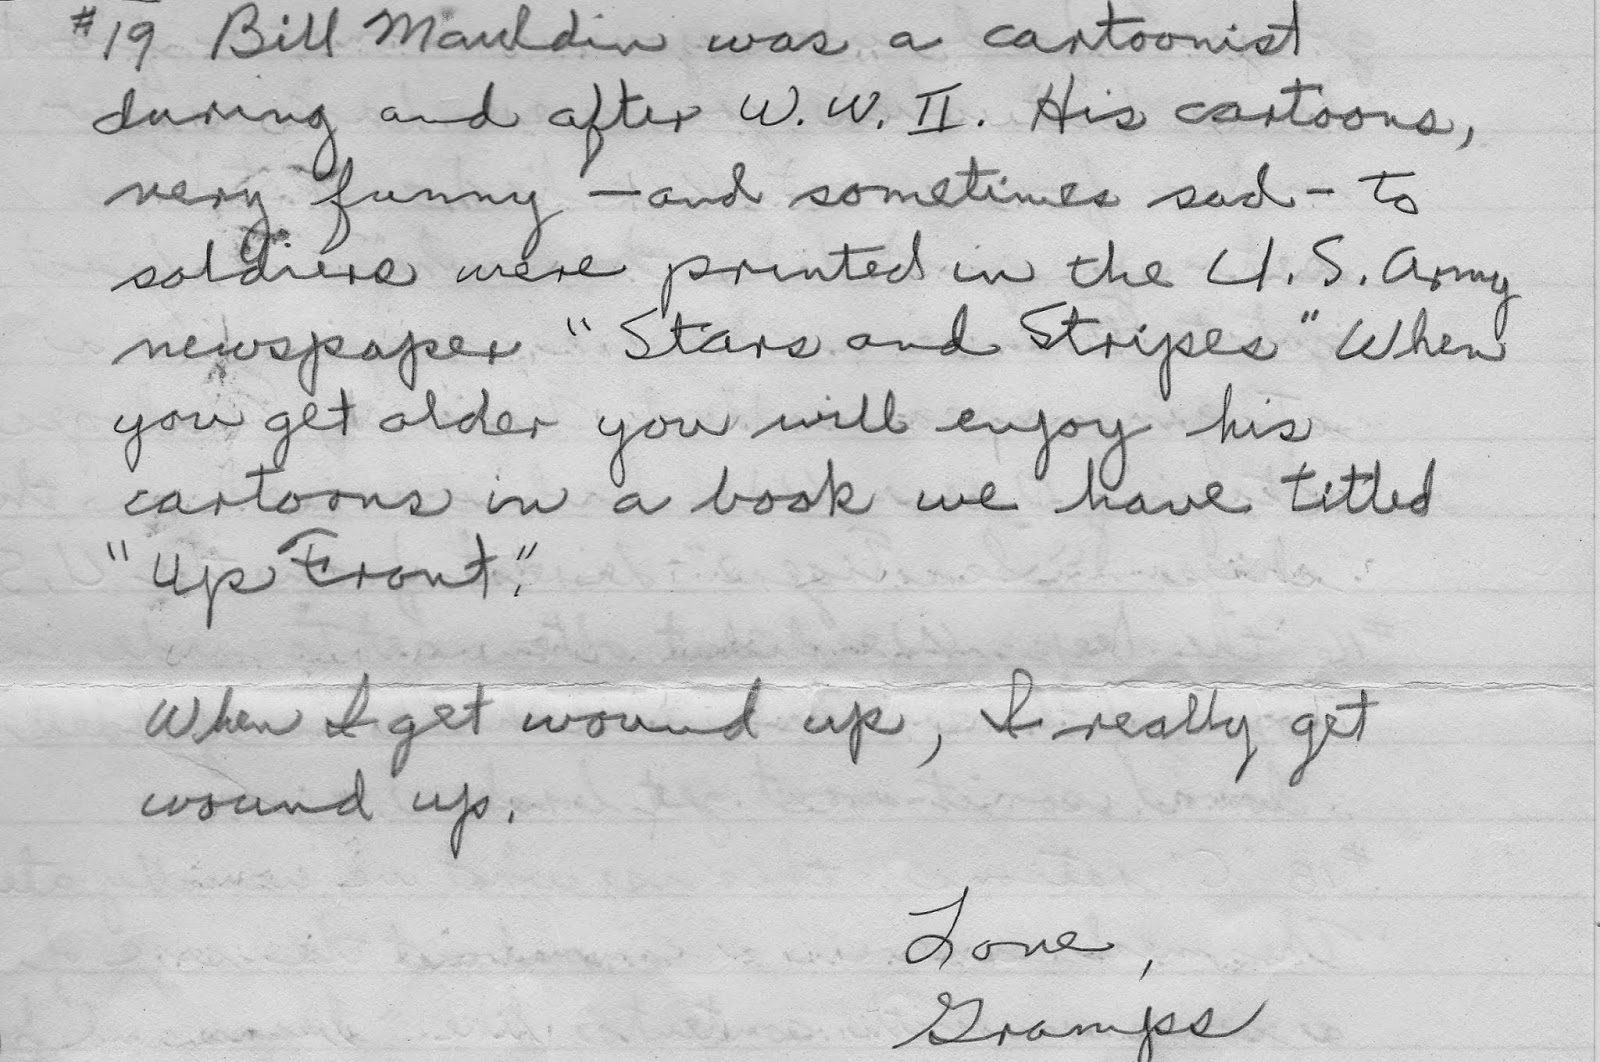 #19 Bill Mauldin was a cartoonist
during and after W.W. II. His cartoons,
very funny — and sometimes sad - to
soldiers were printed in the U.S. Army
newspaper "Stars and Stripes" When
you get older you will enjoy his
cartoons in a book we have titled
"Up Front."
When I get wound up, I really get
wound up.
Love,
Gramps